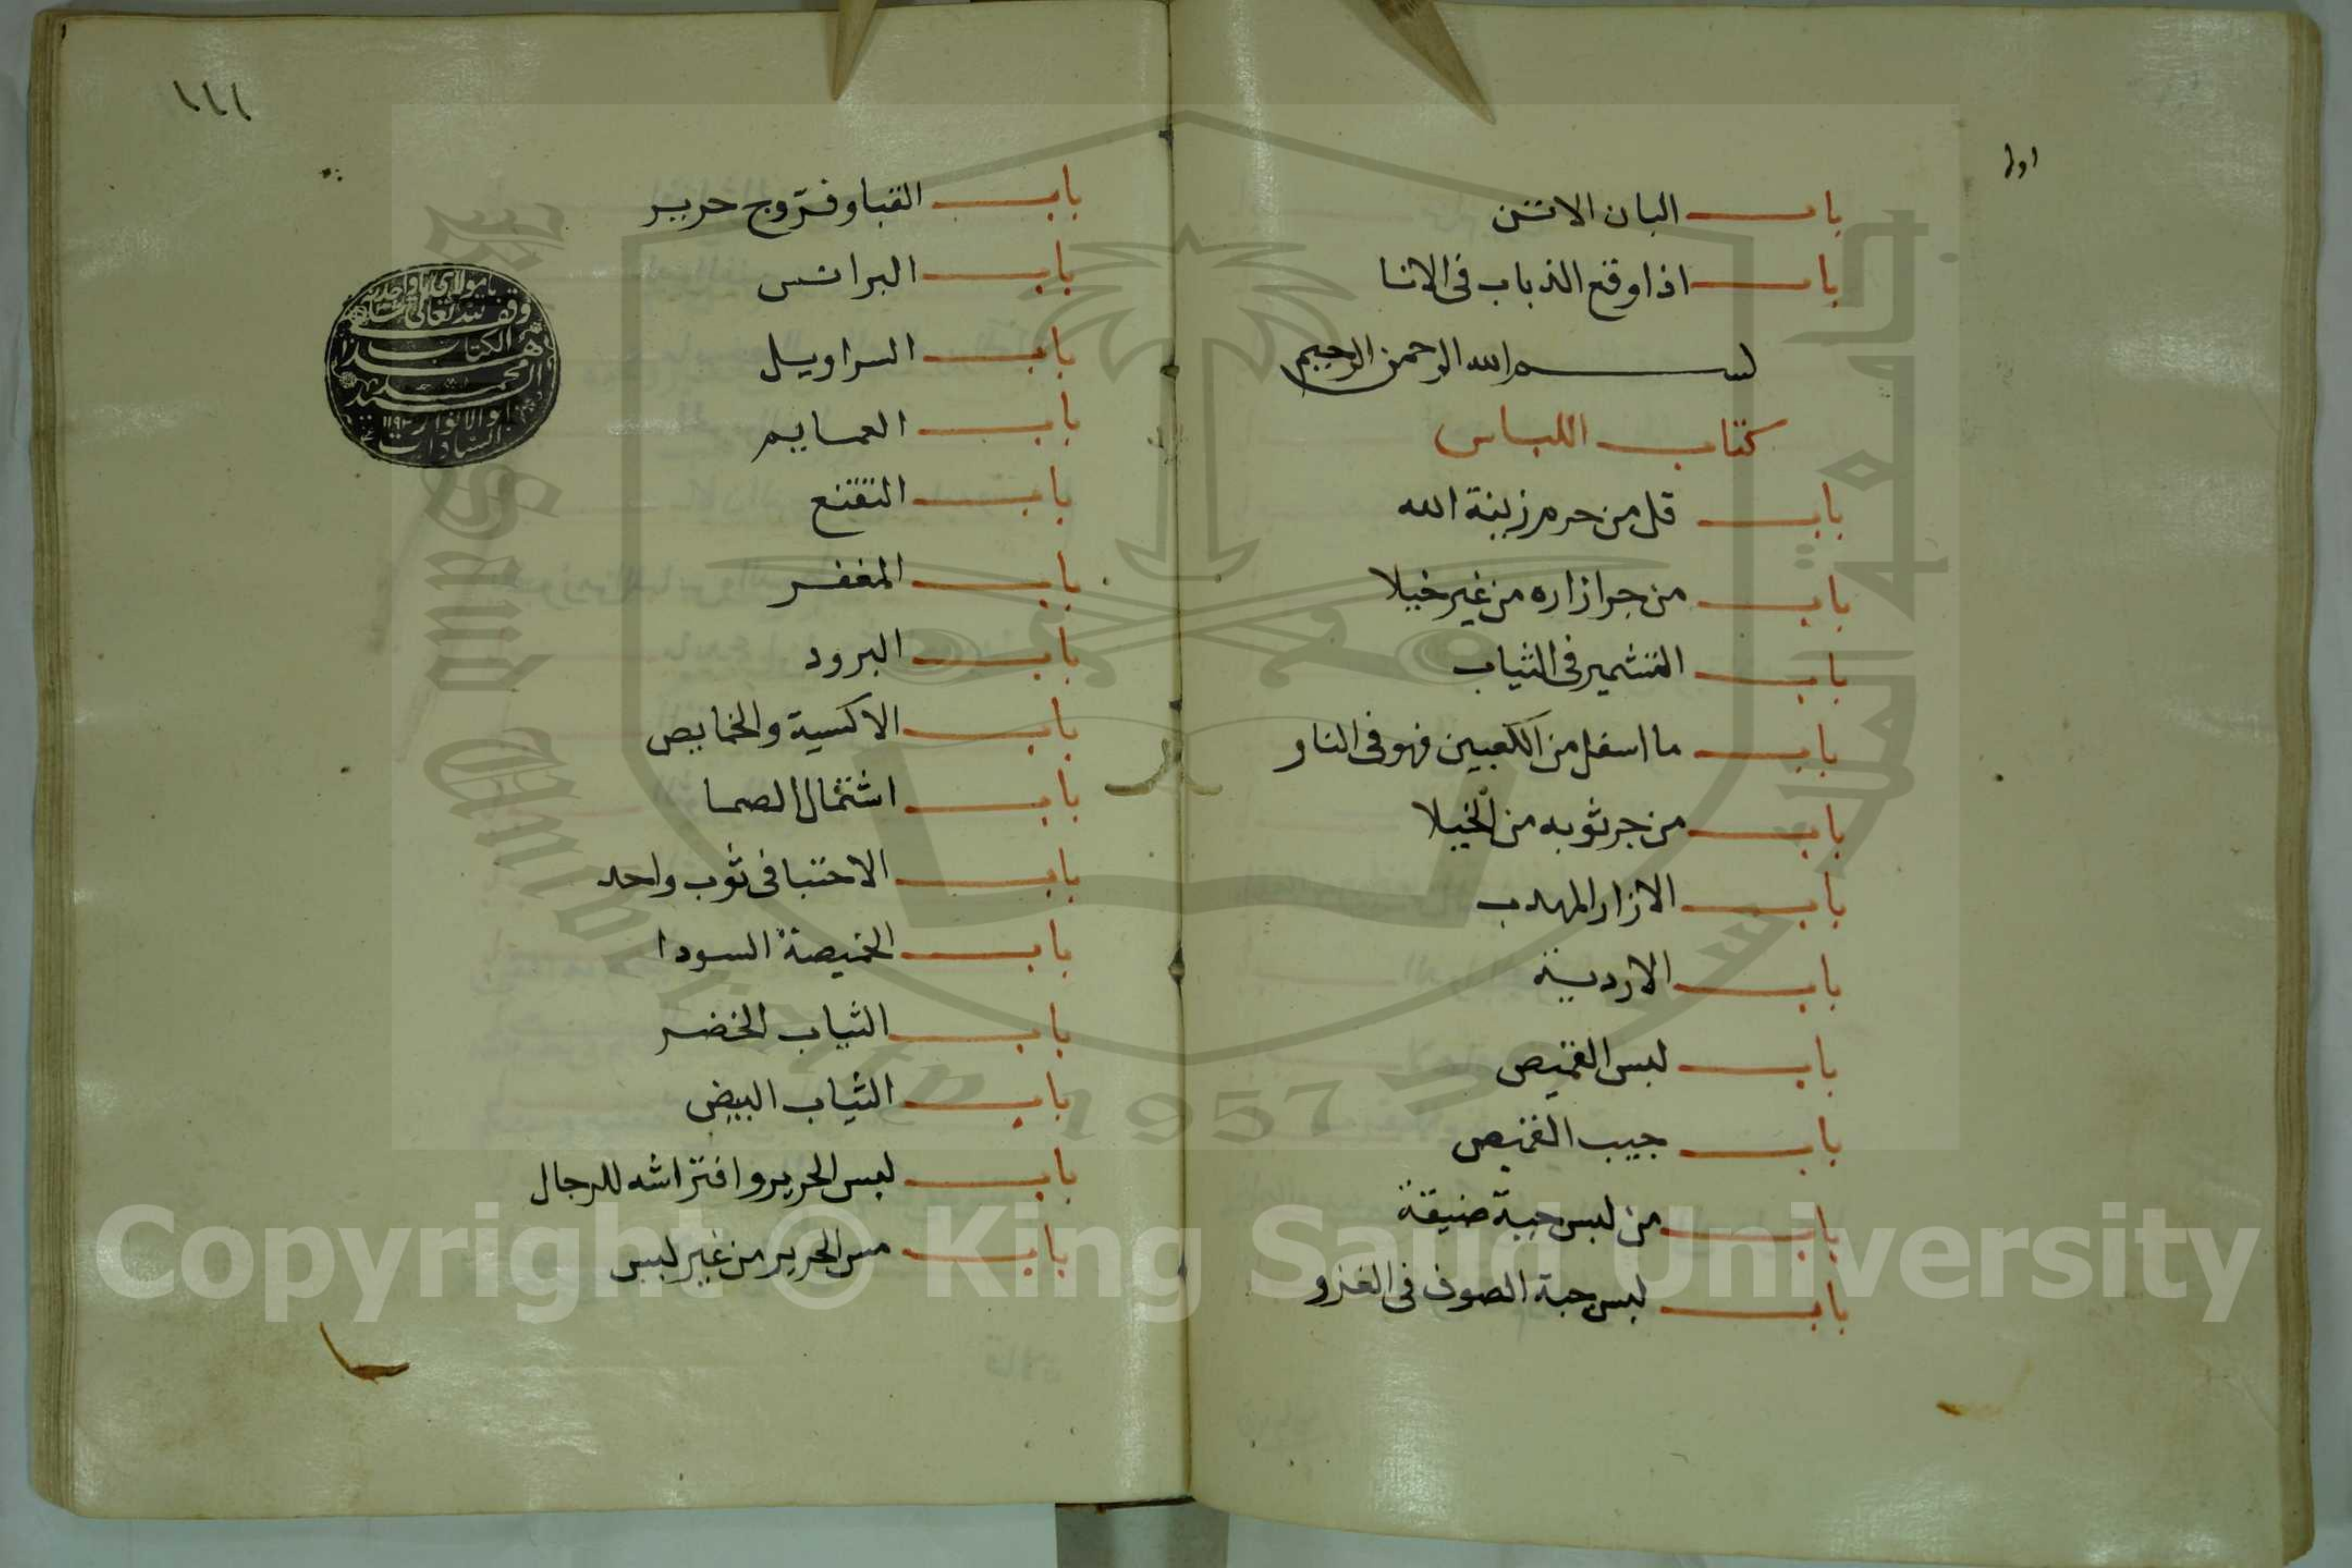 باب البان الاتن
باب اذا وقع الذباب في الانا
بسم الله الرحمن الرحيم
كتاب اللباس
باب قل من حرم زينة الله
باب من جر ازاره من غير خيلا
باب التشمير في الثياب
باب ما اسفل من الكعبين فهو في النار
باب من جر ثوبه من الخيلا
باب الازار المهدب
باب الاردية
باب لبس القميص
باب جيب القميص
باب من لبس جبة ضيقة
باب لبس جبة الصوف في الغزو
١١١
باب القبا وفروج حرير
باب البرانس
باب السراويل
باب العمايم
باب التقنع
باب المغفر
باب البرود
باب الاكسية والخمايص
باب اشتمال الصما
باب الاحتبا في ثوب واحد
باب الخميصة السودا
باب الثياب الخضر
باب الثياب البيض
باب لبس الحرير وافتراشه للرجال
باب مس الحرير من غير لبس
يا مولاي يا واحد
وقف لله تعالى
هذا الكتاب
السيد محمد
ابو الانوار
السادات
جامعة الملك سعود
King Saud University
1957
Copyright © King Saud University